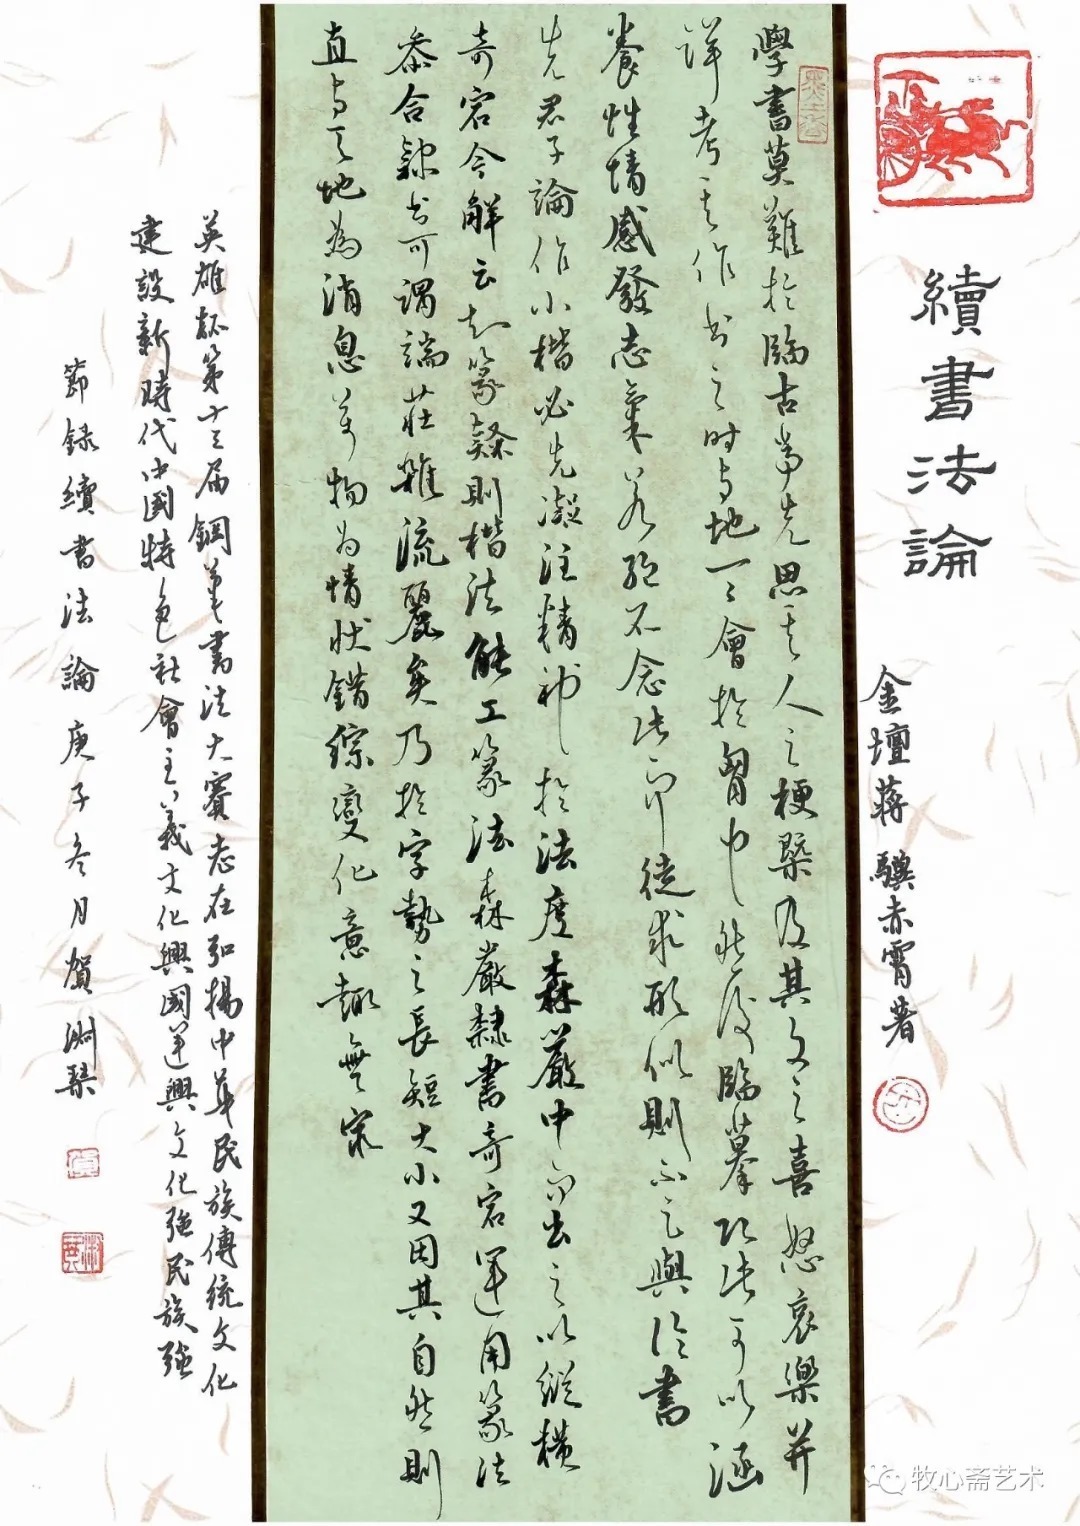 續書法論
金壇蔣驥赤霄著
學書莫難於臨古當先思其人之梗槩及其文之喜怒哀樂并
詳考其作書之時與地一一會於胸中然後臨摹即此可以涵
養性情感發志氣若絕不念此而徒求形似則不足與論書
先君子論作小楷必先凝注精神於法度森嚴中而出之以縱橫
奇宕今解云知篆隸則楷法能工篆法森嚴隸書奇宕運用篆法
參合隸書可謂端莊雜流麗矣乃於字勢之長短大小又因其自然則
直與天地為消息萬物為情狀錯綜變化意趣無窮
英雄杯第十三届鋼筆書法大賽志在弘揚中華民族傳統文化
建設新時代中國特色社會主義文化興國運興文化強民族強
節録續書法論庚子冬月賀淵琴
牧心斋艺术